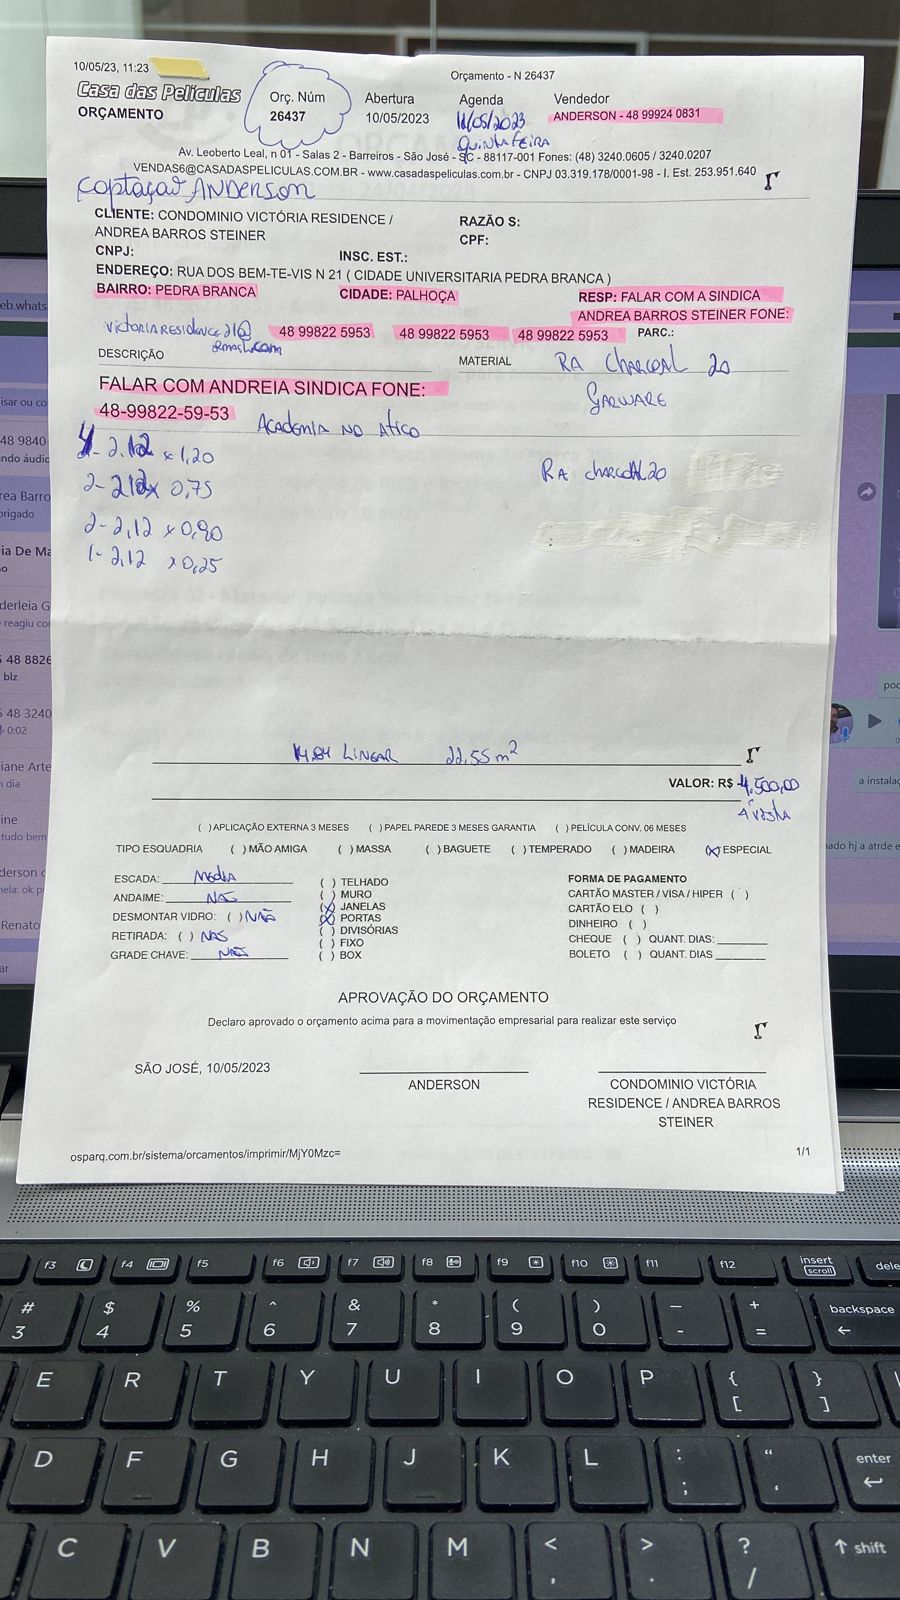 10/05/23, 11:23
Orçamento - N 26437
Casa das Películas
ORÇAMENTO
Orç. Núm
26437
Abertura
10/05/2023
Agenda
11/05/2023
QUINTA FEIRA
Vendedor
ANDERSON - 48 99924 0831
Av. Leoberto Leal, n 01 - Salas 2 - Barreiros - São José - SC - 88117-001 Fones: (48) 3240.0605 / 3240.0207
VENDAS6@CASADASPELICULAS.COM.BR - www.casadaspeliculas.com.br - CNPJ 03.319.178/0001-98 - I. Est. 253.951.640
Captação ANDERSON
CLIENTE: CONDOMINIO VICTÓRIA RESIDENCE /
ANDREA BARROS STEINER
RAZÃO S:
CPF:
CNPJ:
INSC. EST.:
ENDEREÇO: RUA DOS BEM-TE-VIS N 21 ( CIDADE UNIVERSITARIA PEDRA BRANCA )
BAIRRO: PEDRA BRANCA
CIDADE: PALHOÇA
RESP: FALAR COM A SINDICA
ANDREA BARROS STEINER FONE:
victoriaresidence21@
gmail.com
48 99822 5953
48 99822 5953
48 99822 5953
PARC.:
DESCRIÇÃO
MATERIAL
RA CHARCOAL 20
GARWARE
FALAR COM ANDREIA SINDICA FONE:
48-99822-59-53
Academia no Atico
4 - 2.12 x 1,20
2 - 212 x 0,75
RA charcoal 20
2 - 2,12 x 0,90
1 - 2,12 x 0,25
14,84 LINEAR 22,55 m²
VALOR: R$ 4.500,00
À VISTA
( ) APLICAÇÃO EXTERNA 3 MESES ( ) PAPEL PAREDE 3 MESES GARANTIA ( ) PELÍCULA CONV. 06 MESES
TIPO ESQUADRIA ( ) MÃO AMIGA ( ) MASSA ( ) BAGUETE ( ) TEMPERADO ( ) MADEIRA (X) ESPECIAL
ESCADA: Média
ANDAIME: NÃO
DESMONTAR VIDRO: ( ) NÃO
RETIRADA: ( ) NÃO
GRADE CHAVE: NÃO
( ) TELHADO
( ) MURO
(X) JANELAS
(X) PORTAS
( ) DIVISÓRIAS
( ) FIXO
( ) BOX
FORMA DE PAGAMENTO
CARTÃO MASTER / VISA / HIPER ( )
CARTÃO ELO ( )
DINHEIRO ( )
CHEQUE ( ) QUANT. DIAS:
BOLETO ( ) QUANT. DIAS
APROVAÇÃO DO ORÇAMENTO
Declaro aprovado o orçamento acima para a movimentação empresarial para realizar este serviço
SÃO JOSÉ, 10/05/2023
ANDERSON
CONDOMINIO VICTÓRIA
RESIDENCE / ANDREA BARROS
STEINER
osparq.com.br/sistema/orcamentos/imprimir/MjY0Mzc=
1/1
f3 f4 f5 f6 f7 f8 f9 f10 f11 f12 insert dele
scroll
# $ % ^ & * ( ) _ +
3 4 5 6 7 8 9 0 - = backspace
E R T Y U I O P { }
[ ]
D F G H J K L : " enter
; '
C V B N M < > ? shift
, . /